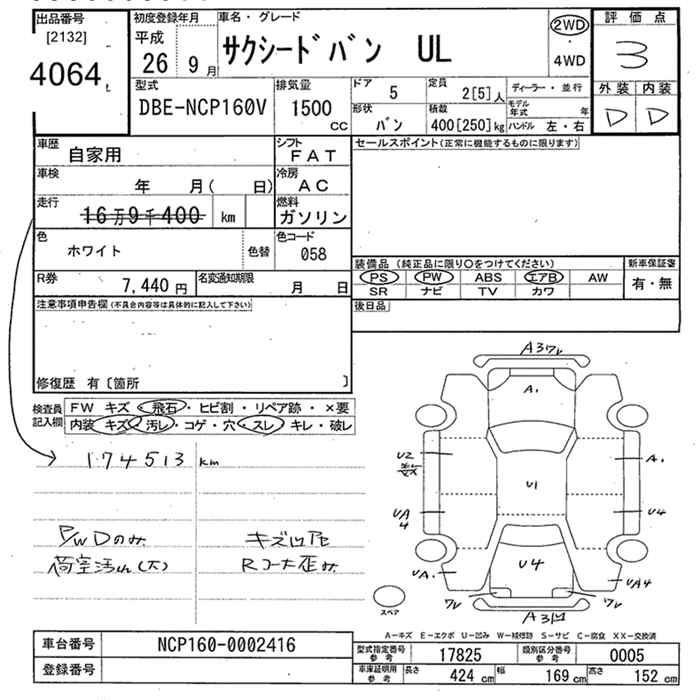 出品番号 初度登録年月 車名・グレード 2WD 評価点
[2132] 平成 サクシードバン UL ・ 3
4064 26 9 月 4WD
型式 排気量 ドア 5 定員 2[5]人 ディーラー・並行 外装 内装
DBE-NCP160V 1500 CC 形状 バン 積載 400[250]kg モデル年式 年 D D
ハンドル 左・右
車歴 自家用 シフト FAT セールスポイント(正常に機能するものに限ります)
車検 年 月( 日) 冷房 AC
走行 16万9千400 km 燃料 ガソリン
色 ホワイト 色替 色コード 058
装備品 (純正品に限り○をつけてください) 新車保証書
R券 7,440円 名変通知期限 月 日 PS PW ABS エアB AW 有・無
SR ナビ TV カワ
注意事項申告欄(不具合内容等は具体的に記入して下さい) 後日品
修復歴 有〔箇所 〕
検査員 FW キズ・飛石・ヒビ割・リペア跡・×要
記入欄 内装 キズ・汚レ・コゲ・穴・スレ・キレ・破レ
174513 km
P/WDのみ キズ凹色
荷室汚れ(大) Rコーナー歪み
A3ワレ
A.
U2 A.
U1
UA4 U4
U4
UA. UA4
ワレ ワレ
スペア A3凹
A-キズ E-エクボ U-凹み W-補修跡 S-サビ C-腐食 XX-交換済
車台番号 NCP160-0002416 型式指定番号 参考 17825 類別区分番号 参考 0005
登録番号 車庫証明用 参考 長さ 424 cm 幅 169 cm 高さ 152 cm